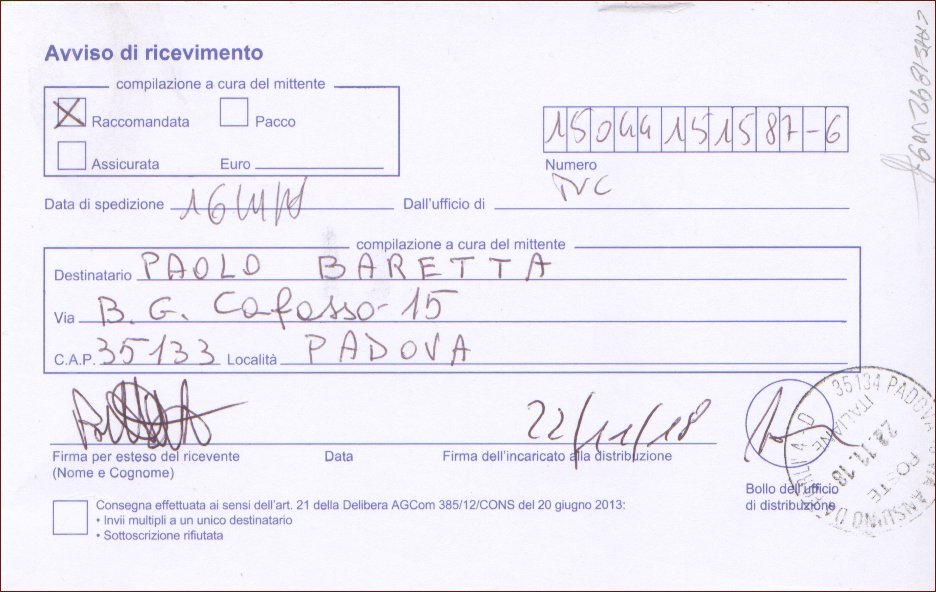 Avviso di ricevimento
compilazione a cura del mittente
X Raccomandata Pacco
Assicurata Euro
15044151587-6
Numero
Data di spedizione 16 Dall'ufficio di
compilazione a cura del mittente
Destinatario PAOLO BARETTA
Via B. G. Cafasso 15
C.A.P. 35133 Località PADOVA
22/11/18
Firma per esteso del ricevente Data Firma dell'incaricato alla distribuzione
(Nome e Cognome)
Bollo dell'ufficio
di distribuzione
Consegna effettuata ai sensi dell'art. 21 della Delibera AGCom 385/12/CONS del 20 giugno 2013:
• Invii multipli a un unico destinatario
• Sottoscrizione rifiutata
35134 PADOVA
POSTE ITALIANE
22.11.18